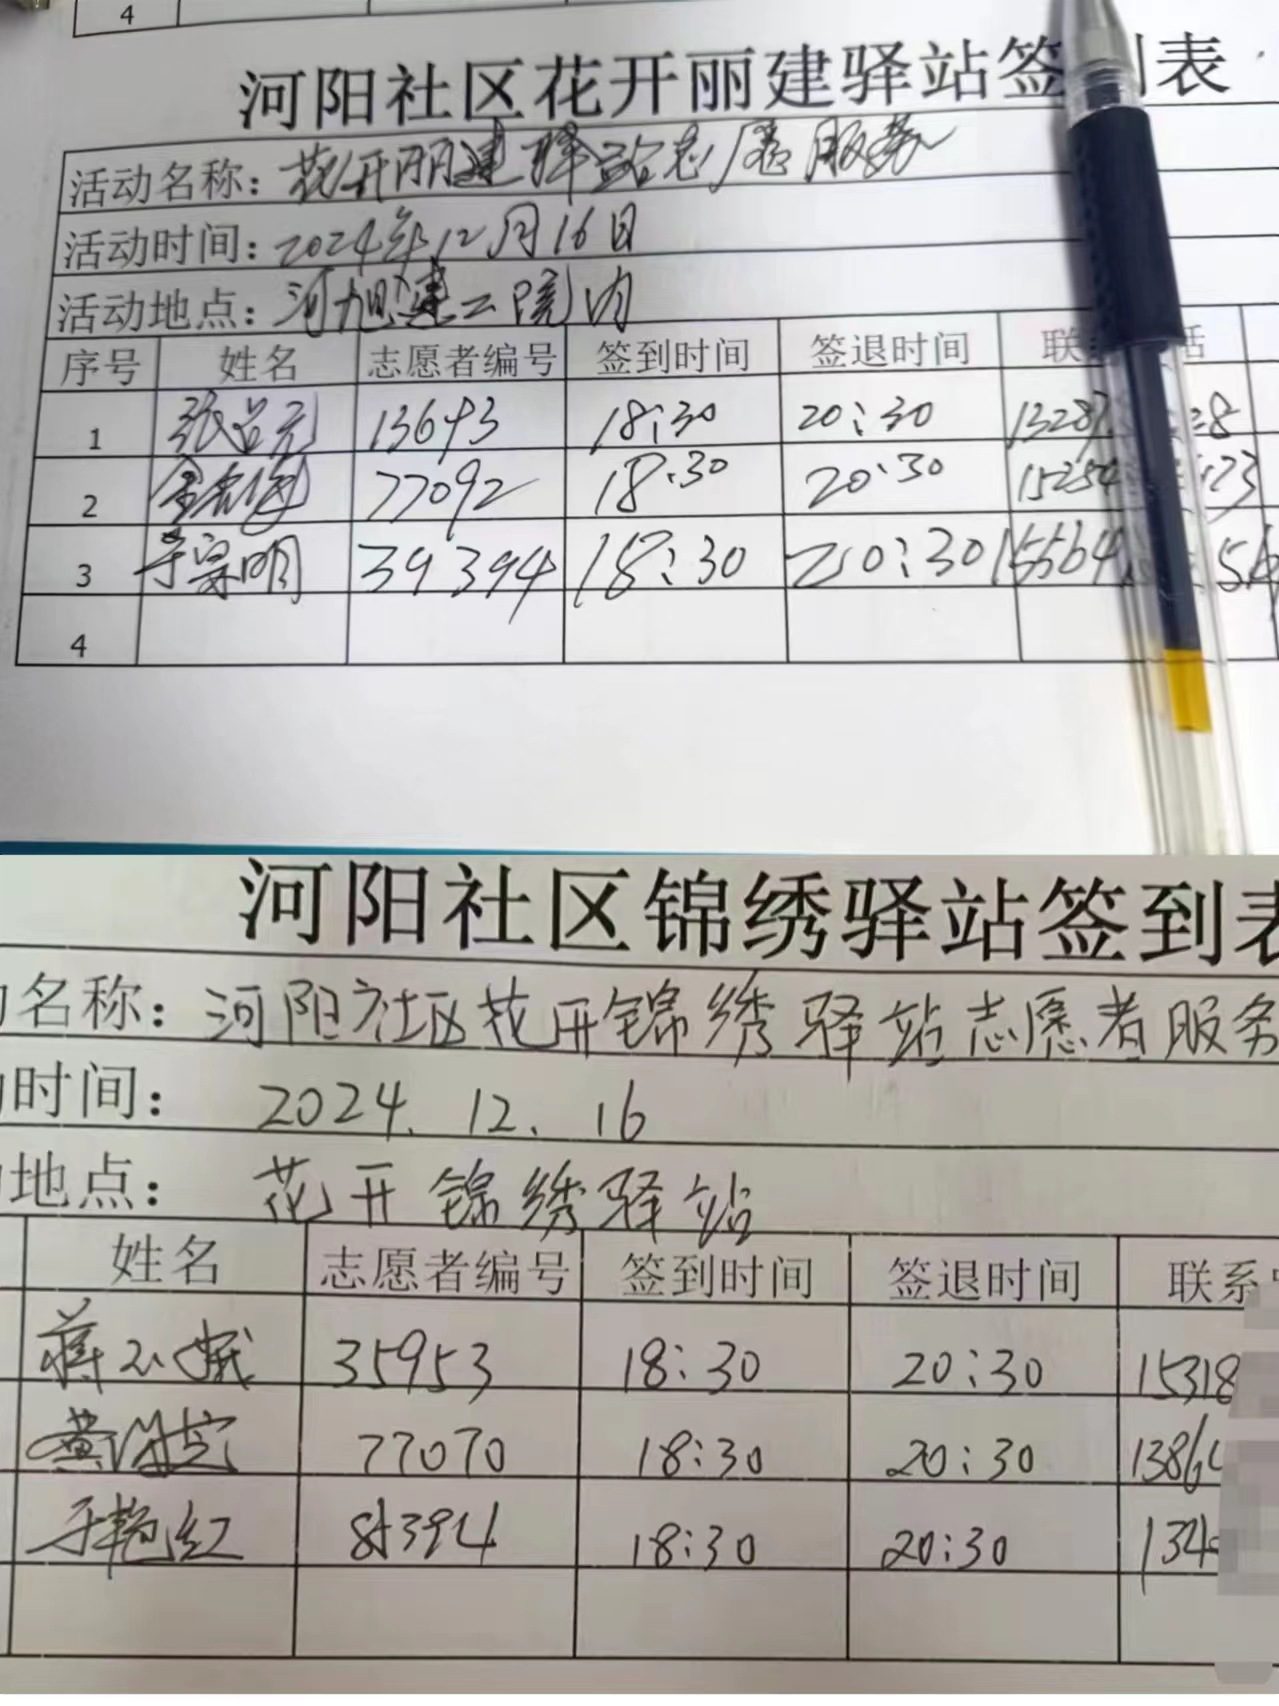 4
河阳社区花开丽建驿站签到表
活动名称：花开丽建驿站志愿服务
活动时间：2024年12月16日
活动地点：河旭建工院内
序号 姓名 志愿者编号 签到时间 签退时间 联 话
1 13693 18:30 20:30 13287 28
2 77092 18:30 20:30 15254 23
3 于宗明 39394 18:30 20:30 15564 56
4
河阳社区锦绣驿站签到表
名称：河阳社区花开锦绣驿站志愿者服务
时间：2024.12.16
地点：花开锦绣驿站
姓名 志愿者编号 签到时间 签退时间 联系
35953 18:30 20:30 15318
77070 18:30 20:30 1386
于艳红 85394 18:30 20:30 134